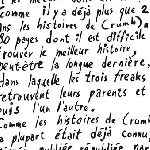 comme il y a déjà plus que 2
ans les histoires de Crumb) m
30 pages dont il est difficile
trouver le meilleur histoire,
eut-être la longue dernière,
dans laquelle les trois freaks
retrouvent leurs parents et
puis l'un l'autre.
Comme les histoires de (Crumb
a plupart était déjà connu,